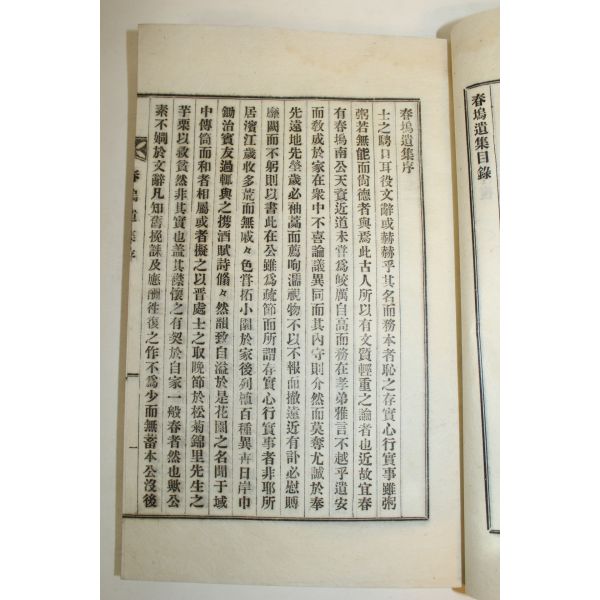 春塢遺集目錄
春塢遺集序
士之騖口耳役文辭或赫赫乎其名而務本者恥之存實心行實事雖粥
粥若無能而尚德者與焉此古人所以有文質輕重之論者也近故宜春
有春塢南公天資近道未嘗爲皎厲自高而務在孝弟雅言不越乎遺安
而敎成於家在衆中不喜論議異同而其內守則介然而莫奪尤誠於奉
先遠地先塋歲必袖藁而薦呴濡視物不以不報而撤遠近有訃必慰賻
廳闕而不躬則以書此在公雖爲疏節而所謂存實心行實事者非耶所
居濱江歲收多荒而無戚々色嘗拓小園於家後列植百種異卉日岸巾
鋤治賓友過輒與之携酒賦詩翛々然韻致自溢於是花園之名聞于域
中傳筒而和者相屬或者擬之以晋處士之取晚節於松菊錦里先生之
芋栗以救貧然非其實也盖其襟懷之有契於自家一般春者然也歟公
素不嫺於文辭凡知舊挽誄及應酬往復之作不爲少而無蓄本公沒後
春塢遺集序
一